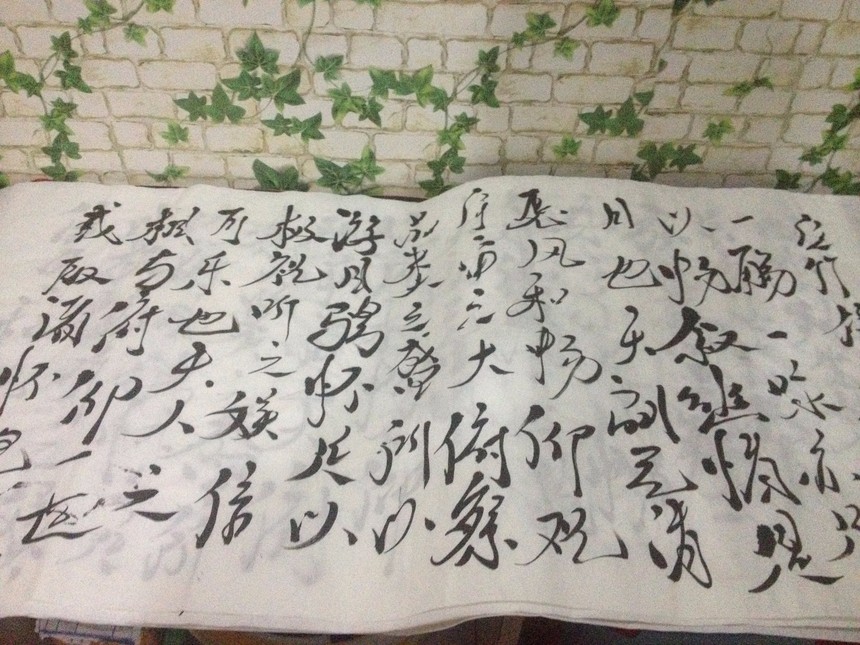 丝竹管
一觞一咏亦足
以畅叙幽情是
日也天朗气清
惠风和畅仰观
宇宙之大俯察
品类之盛所以
游目骋怀足以
极视听之娱信
可乐也夫人之
相与俯仰一世
或取诸怀